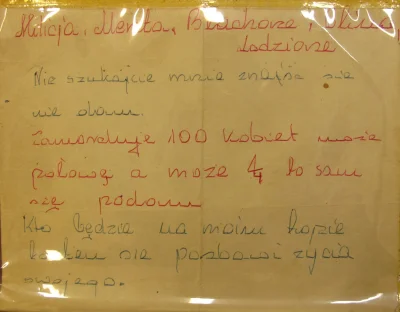 Milicja, Menta, Blachorze,
Łodziorze
Nie szukajcie mnie znajść się
nie dam.
Zamorduje 100 kobiet moze
połowę a moze 4 to sam
się podam
Kto będzie na moim kopie
ten sie pozbawi zycia
swojego.